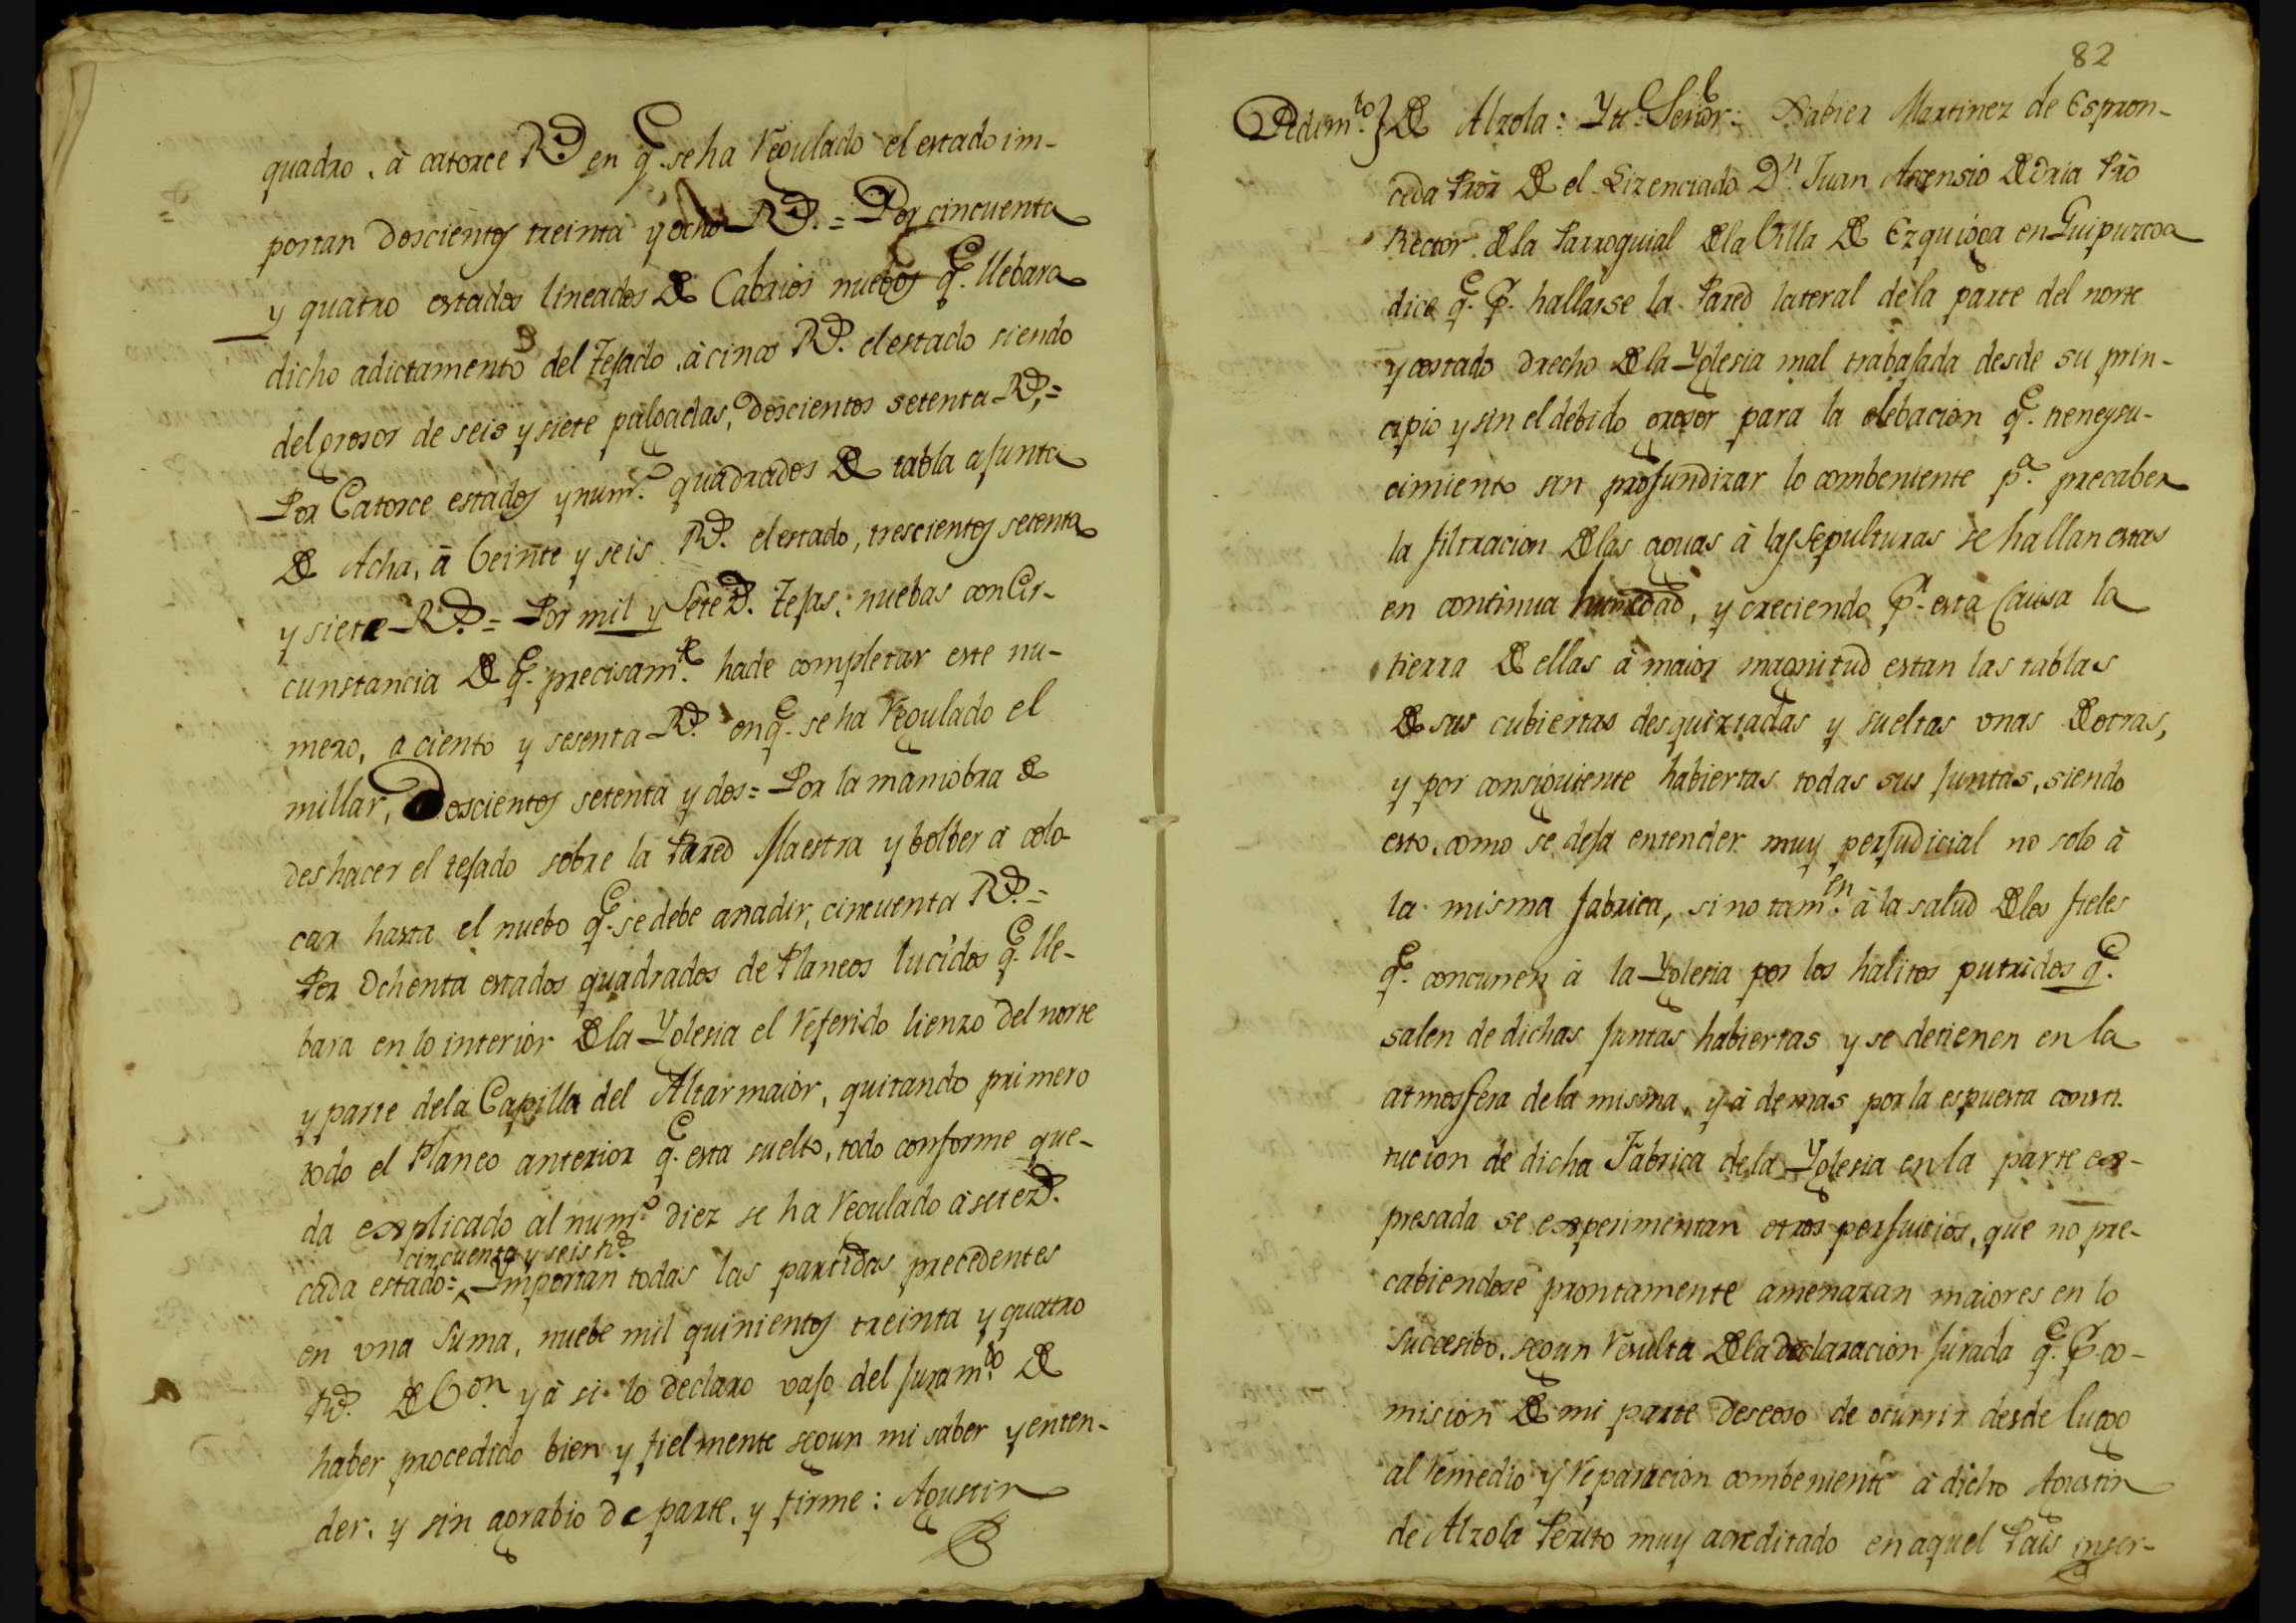 quadro, à catorce R.^d en q.^e se ha Regulado el estado im-
portan Doscientos treinta y ocho R.^d = Por cincuenta
y quatro estados lineados de Cabrios nuebos q.^e llebara
dicho adictamento del Tejado, à cinco R.^d el estado siendo
del grosor de seis y siete pulgadas, Doscientos setenta R.^d =
Por Catorce estados y num.^o quadrados de tabla ajunta
de Acha, à beinte y seis R.^d el estado, trescientos setenta
y siete R.^d = Por mil y Sete^d. Tejas, nuebas con Cir-
cunstancia de q.^e precisam.^te hade completar este nu-
mero, a ciento y sesenta R.^d en q.^e se ha Regulado el
millar, Doscientos setenta y dos = Por la maniobra de
deshacer el tejado sobre la Pared Maestra y bolber à colo-
car hasta el nuebo q.^e se debe añadir, cincuenta R.^d =
Por Ochenta estados quadrados de Planeos lucidos q.^e lle-
bara en lo interior de la Yglesia el Referido lienzo del norte
y parte dela Capilla del Altar maior, quitando primero
todo el Planeo anterior q.^e esta suelto, todo conforme que-
da explicado al num.^o diez se ha Regulado à sete r^d.
cincuenta y seis r^d
cada estado = Ymportan todas las partidas precedentes
en una Suma, nuebe mil quinientos treinta y quatro
r^d. de b^on. y à si lo declaro vajo del juram.^to de
haber procedido bien y fielmente segun mi saber y enten-
der, y sin agrabio de parte, y firme: Agustin
82
Pedim^to.} de Alzola: Ytt. Señor: Xabier Martinez de Espron-
ceda Pror de el Lizenciado D.^n Juan Asensio de Oria Pro
Rector de la Parroquial de la Villa de Ezquioga en Guipuzcoa
dice q.^e p.^r hallarse la Pared lateral dela parte del norte
y costado drecho de la Yglesia mal trabajada desde su prin-
cipio y sin el debido grosor para la elebacion q.^e tiene y su-
cimiento sin profundizar lo combeniente p.^a precaber
la filtracion de las aguas à las Sepulturas se hallan estas
en continua humedad, y creciendo p.^r esta Causa la
tierra de ellas à maior magnitud estan las tablas
de sus cubiertas desquiziadas y sueltas unas de otras,
y por consiguiente habiertas todas sus juntas, siendo
esto, como se deja entender muy perjudicial no solo à
la misma fabrica, si no tam.^en à la salud de los fieles
q.^e concurren à la Yglesia por los halitos putridos q.^e
salen de dichas juntas habiertas y se detienen en la
atmosfera dela misma, y à demas por la espuesta consti-
tucion de dicha Fabrica dela Yglesia en la parte ex-
presada se experimentan otros perjuicios, que no pre-
cabiendose prontamente amenazan maiores en lo
Succesibo, segun Resulta de la declaracion Jurada q.^e p.^r co-
mision de mi parte deseoso de ocurrir desde luego
al Remedio y Reparacion combeniente à dicho Agustin
de Alzola Perito muy acreditado en aquel Pais inser-